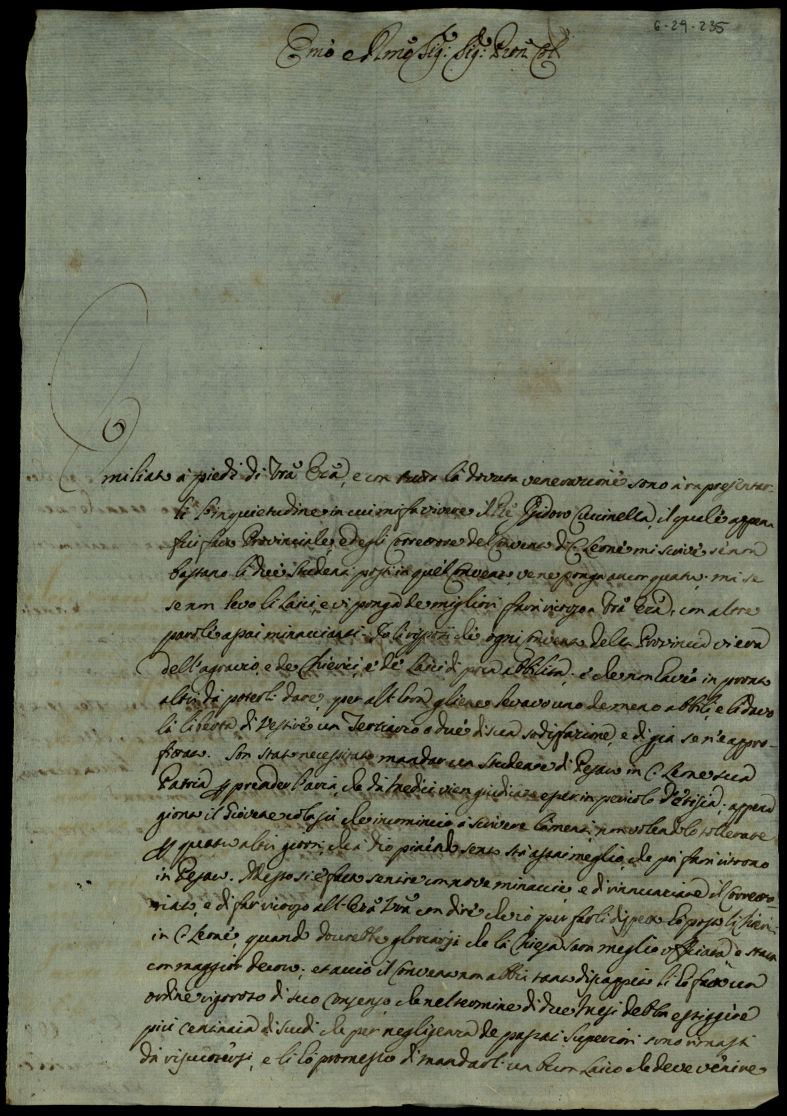 6-29-235
Emo e Rmo Sig: Sig: Pron Col
Umiliato à piedi di Vrã Emã, e con tutta la dovuta venerazione sono à rapresentar
li l'inquietudine in cui mi fa vivere il Pre Isidoro Cucinella, il quale appena
fui fatto Provinciale, ed egli Correttore del Convento di C. Leone mi scrive se non
bastano li dieci Studenti posti in quel Convento, ve ne ponga ancor quattro; mi se
se non levo li Laici, e vi ponga de migliori farà ricorso a Vrã Emã, con altre
parole assai minaccianti. Io li risposi che ogni Convento della Provincia vi era
dell'agravio, e de Chierici, e de Laici di poca abbilità; e che non havea in pronto
altri da poterli dare, per altro gliene levavo uno de meno abbili, e li davo
la libertà di Vestire un Terziario o due di sua sodisfazione, e di già se n'è appro-
fittato. Son stato necessitato mandar un Studente di Pesaro in C. Leone sua
Patria p prender l'aria, che da Medici vien giudicato esser in pericolo d'etisia; appena
gionto il Giovene colassù che incominciò a scrivere lamenti, non volendolo tollerare
p quattro altri giorni, che à Dio piacendo sento stà assai meglio, che poi farà ritorno
in Pesaro. Adesso si è fatto sentire con nove minaccie, e di rinunciare il Corretto-
riato, e di far ricorso all'Emã Vrã con dire che io per farli dispetto ho posto li Chierici
in C. Leone, quando dovrebbe gloriarsi che la Chiesa sarà meglio offiziata, e starà
con maggior decoro; et acciò il Convento non abbi tanto discapito li ho fatto un
ordine rigoroso di suo consenso che nel termine di due Mesi debba essiggere
più centinaia di scudi che per negligenza de passati Superiori sono rimasti
da riscuotersi, e li ho promesso di mandarli un buon Laico che deve venire